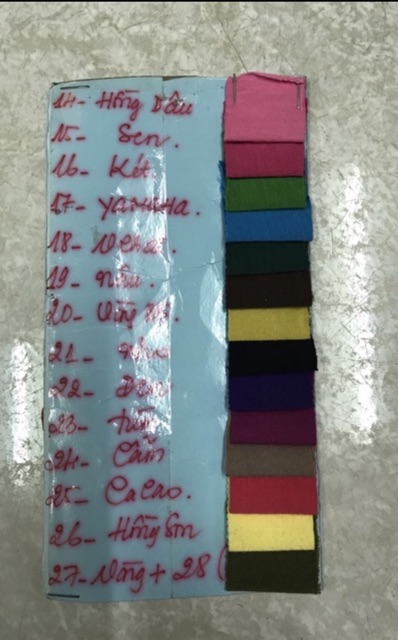 14- Hồng Dâu
15- Sen.
16- Két
17- yamaha.
18- Ve chai.
19- nâu.
20-
21-
22- Đen
23- tím
24- Cẩm
25- Ca Cao.
26- Hồng Sm
27- Vàng + 28 (